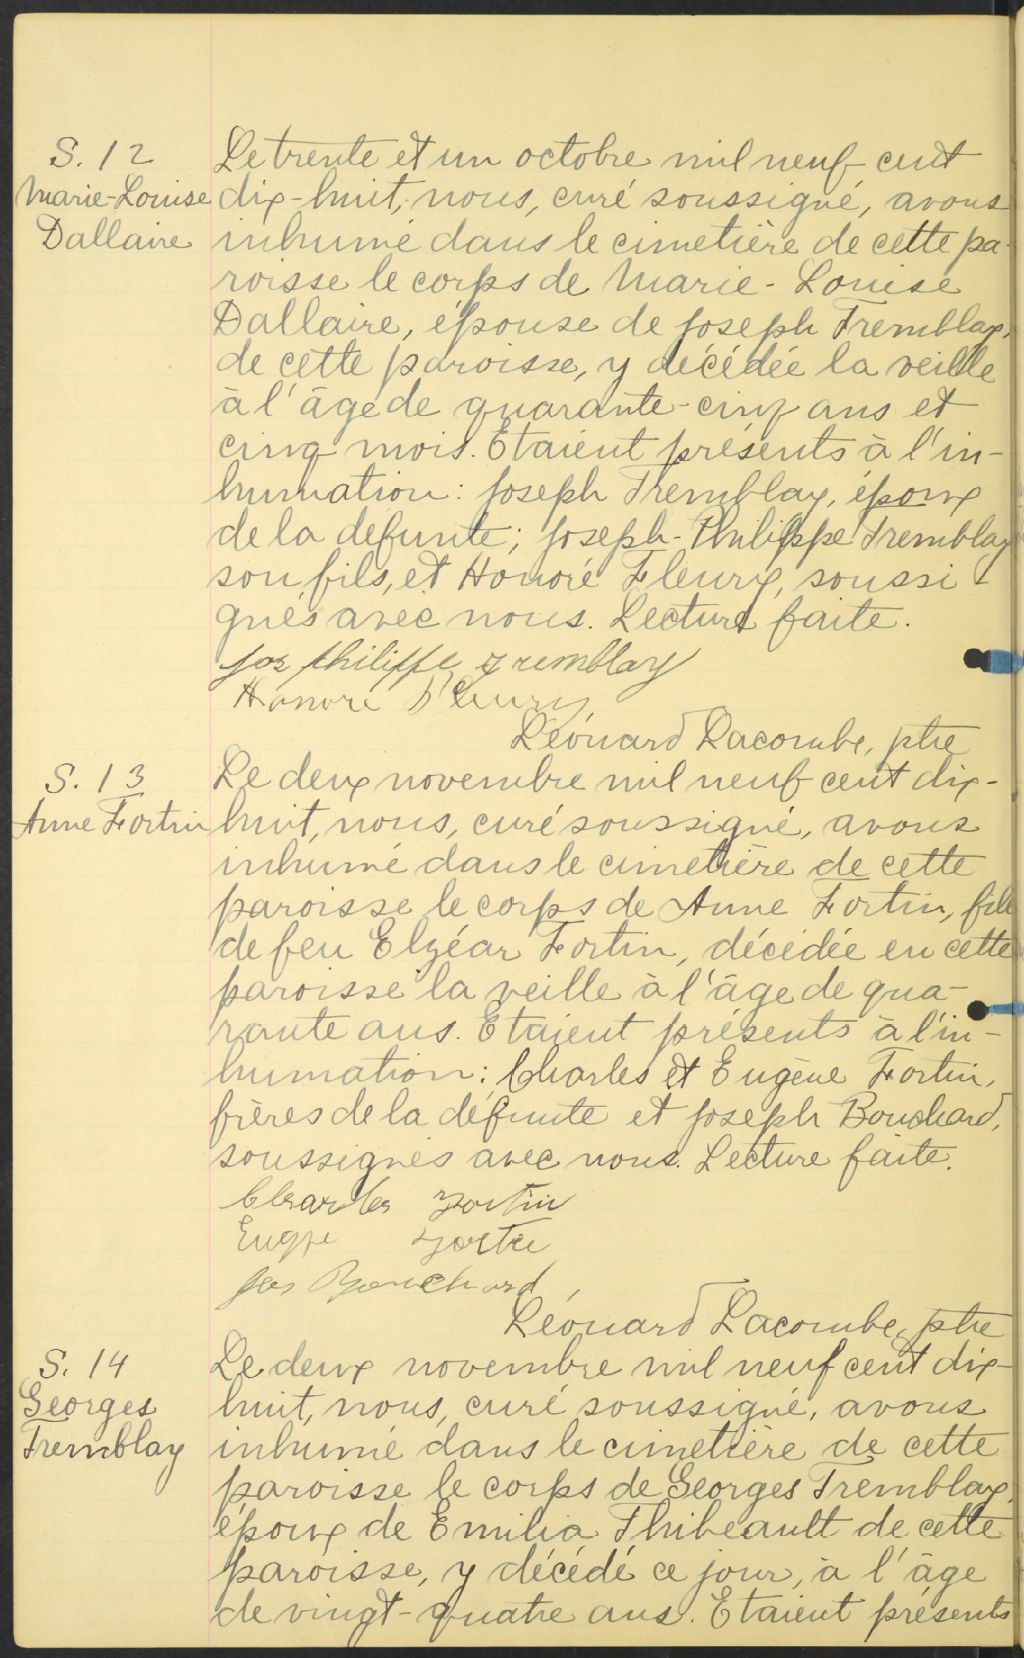 S. 12
Marie-Louise
Dallaire
Le trente et un octobre mil neuf cent
dix-huit, nous, curé soussigné, avons
inhumé dans le cimetière de cette pa-
roisse le corps de Marie-Louise
Dallaire, épouse de Joseph Tremblay,
de cette paroisse, y décédée la veille
à l'âge de quarante-cinq ans et
cinq mois. Etaient présents à l'in-
humation: Joseph Tremblay, époux
de la défunte; Joseph-Philippe Tremblay
son fils, et Honoré Fleury, soussi-
gnés avec nous. Lecture faite.
Jos Philippe Tremblay
Honoré Fleury
Léonard Lacombe, ptre
S. 13
Anne Fortin
Le deux novembre mil neuf cent dix-
huit, nous, curé soussigné, avons
inhumé dans le cimetière de cette
paroisse le corps de Anne Fortin, fille
de feu Elzéar Fortin, décédée en cette
paroisse la veille à l'âge de qua-
rante ans. Etaient présents à l'in-
humation: Charles et Eugène Fortin,
frères de la défunte et Joseph Bouchard,
soussignés avec nous. Lecture faite.
Charles Fortin
Fortin
Jos Bouchard
Léonard Lacombe, ptre
S. 14
Georges
Tremblay
Le deux novembre mil neuf cent dix-
huit, nous, curé soussigné, avons
inhumé dans le cimetière de cette
paroisse le corps de Georges Tremblay,
époux de Emilia Thibeault de cette
paroisse, y décédé ce jour, à l'âge
de vingt-quatre ans. Etaient présents